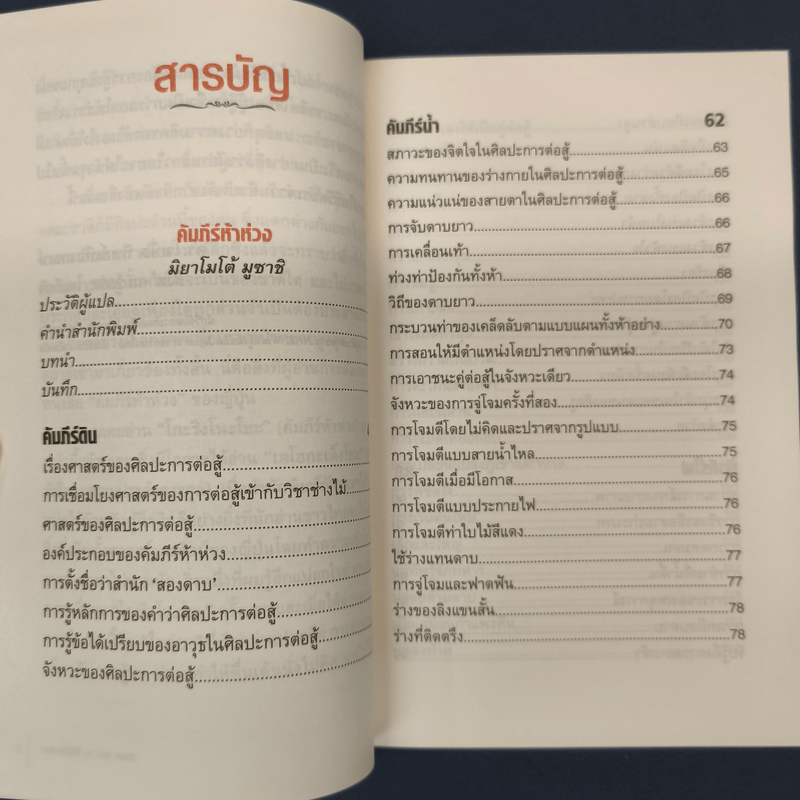 สารบัญ
คัมภีร์ห้าห่วง
มิยาโมโต้ มูซาชิ
ประวัติผู้แปล
คำนำสำนักพิมพ์
บทนำ
บันทึก
คัมภีร์ดิน
เรื่องศาสตร์ของศิลปะการต่อสู้
การเชื่อมโยงศาสตร์ของการต่อสู้เข้ากับวิชาช่างไม้
ศาสตร์ของศิลปะการต่อสู้
องค์ประกอบของคัมภีร์ห้าห่วง
การตั้งชื่อว่าสำนัก ‘สองดาบ’
การรู้หลักการของคำว่าศิลปะการต่อสู้
การรู้ข้อได้เปรียบของอาวุธในศิลปะการต่อสู้
จังหวะของศิลปะการต่อสู้
คัมภีร์น้ำ 62
สภาวะของจิตใจในศิลปะการต่อสู้ 63
ความทนทานของร่างกายในศิลปะการต่อสู้ 65
ความแน่วแน่ของสายตาในศิลปะการต่อสู้ 66
การจับดาบยาว 66
การเคลื่อนเท้า 67
ท่วงท่าป้องกันทั้งห้า 68
วิถีของดาบยาว 69
กระบวนท่าของเคล็ดลับตามแบบแผนทั้งห้าอย่าง 70
การสอนให้มีตำแหน่งโดยปราศจากตำแหน่ง 73
การเอาชนะคู่ต่อสู้ในจังหวะเดียว 74
จังหวะของการจู่โจมครั้งที่สอง 74
การโจมตีโดยไม่คิดและปราศจากรูปแบบ 75
การโจมตีแบบสายน้ำไหล 75
การโจมตีเมื่อมีโอกาส 76
การโจมตีแบบประกายไฟ 76
การโจมตีท่าใบไม้สีแดง 76
ใช้ร่างแทนดาบ 77
การจู่โจมและฟาดฟัน 77
ร่างของลิงแขนสั้น 78
ร่างที่ติดตรึง 78